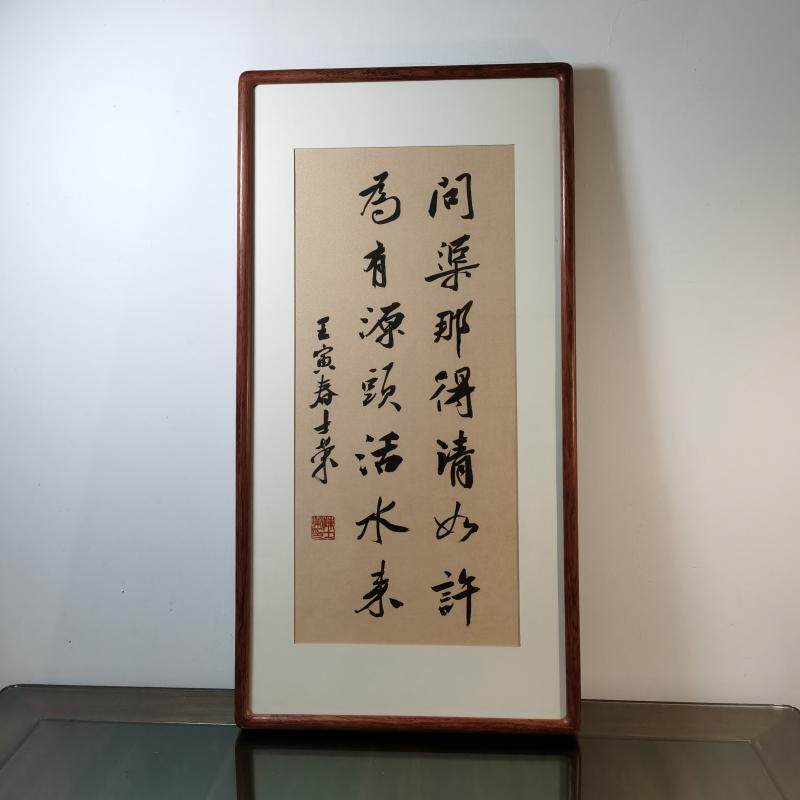 問渠那得清如許
為有源頭活水来
壬寅春士荣